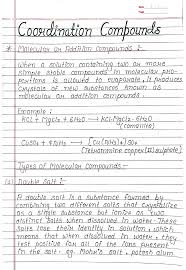 Coordination Compounds
* Molecular or Addition Compounds :-
When a solution containing two or more
simple stable compounds in molecular pro-
portions is allowed to evaporate, it produces
crystals of new substances known as
molecular or addition compounds.
Example :
KCl + MgCl2 + 6H2O → KCl·MgCl2·6H2O
(Carnallite)
CuSO4 + 4NH3 → [Cu(NH3)4]SO4
(Tetraammine copper (II) sulphate)
Types of Molecular Compounds -
(a) Double Salt :-
A double salt is a substance formed by
combining two different salts that crystallize
as a single substance but ionize as two
distinct salts when dissolved in water. These
salts lose their identity in solution, which
means that when dissolved in water, they
test positive for all of the ions present
in the salt. eg. Mohr's salt, potash alum